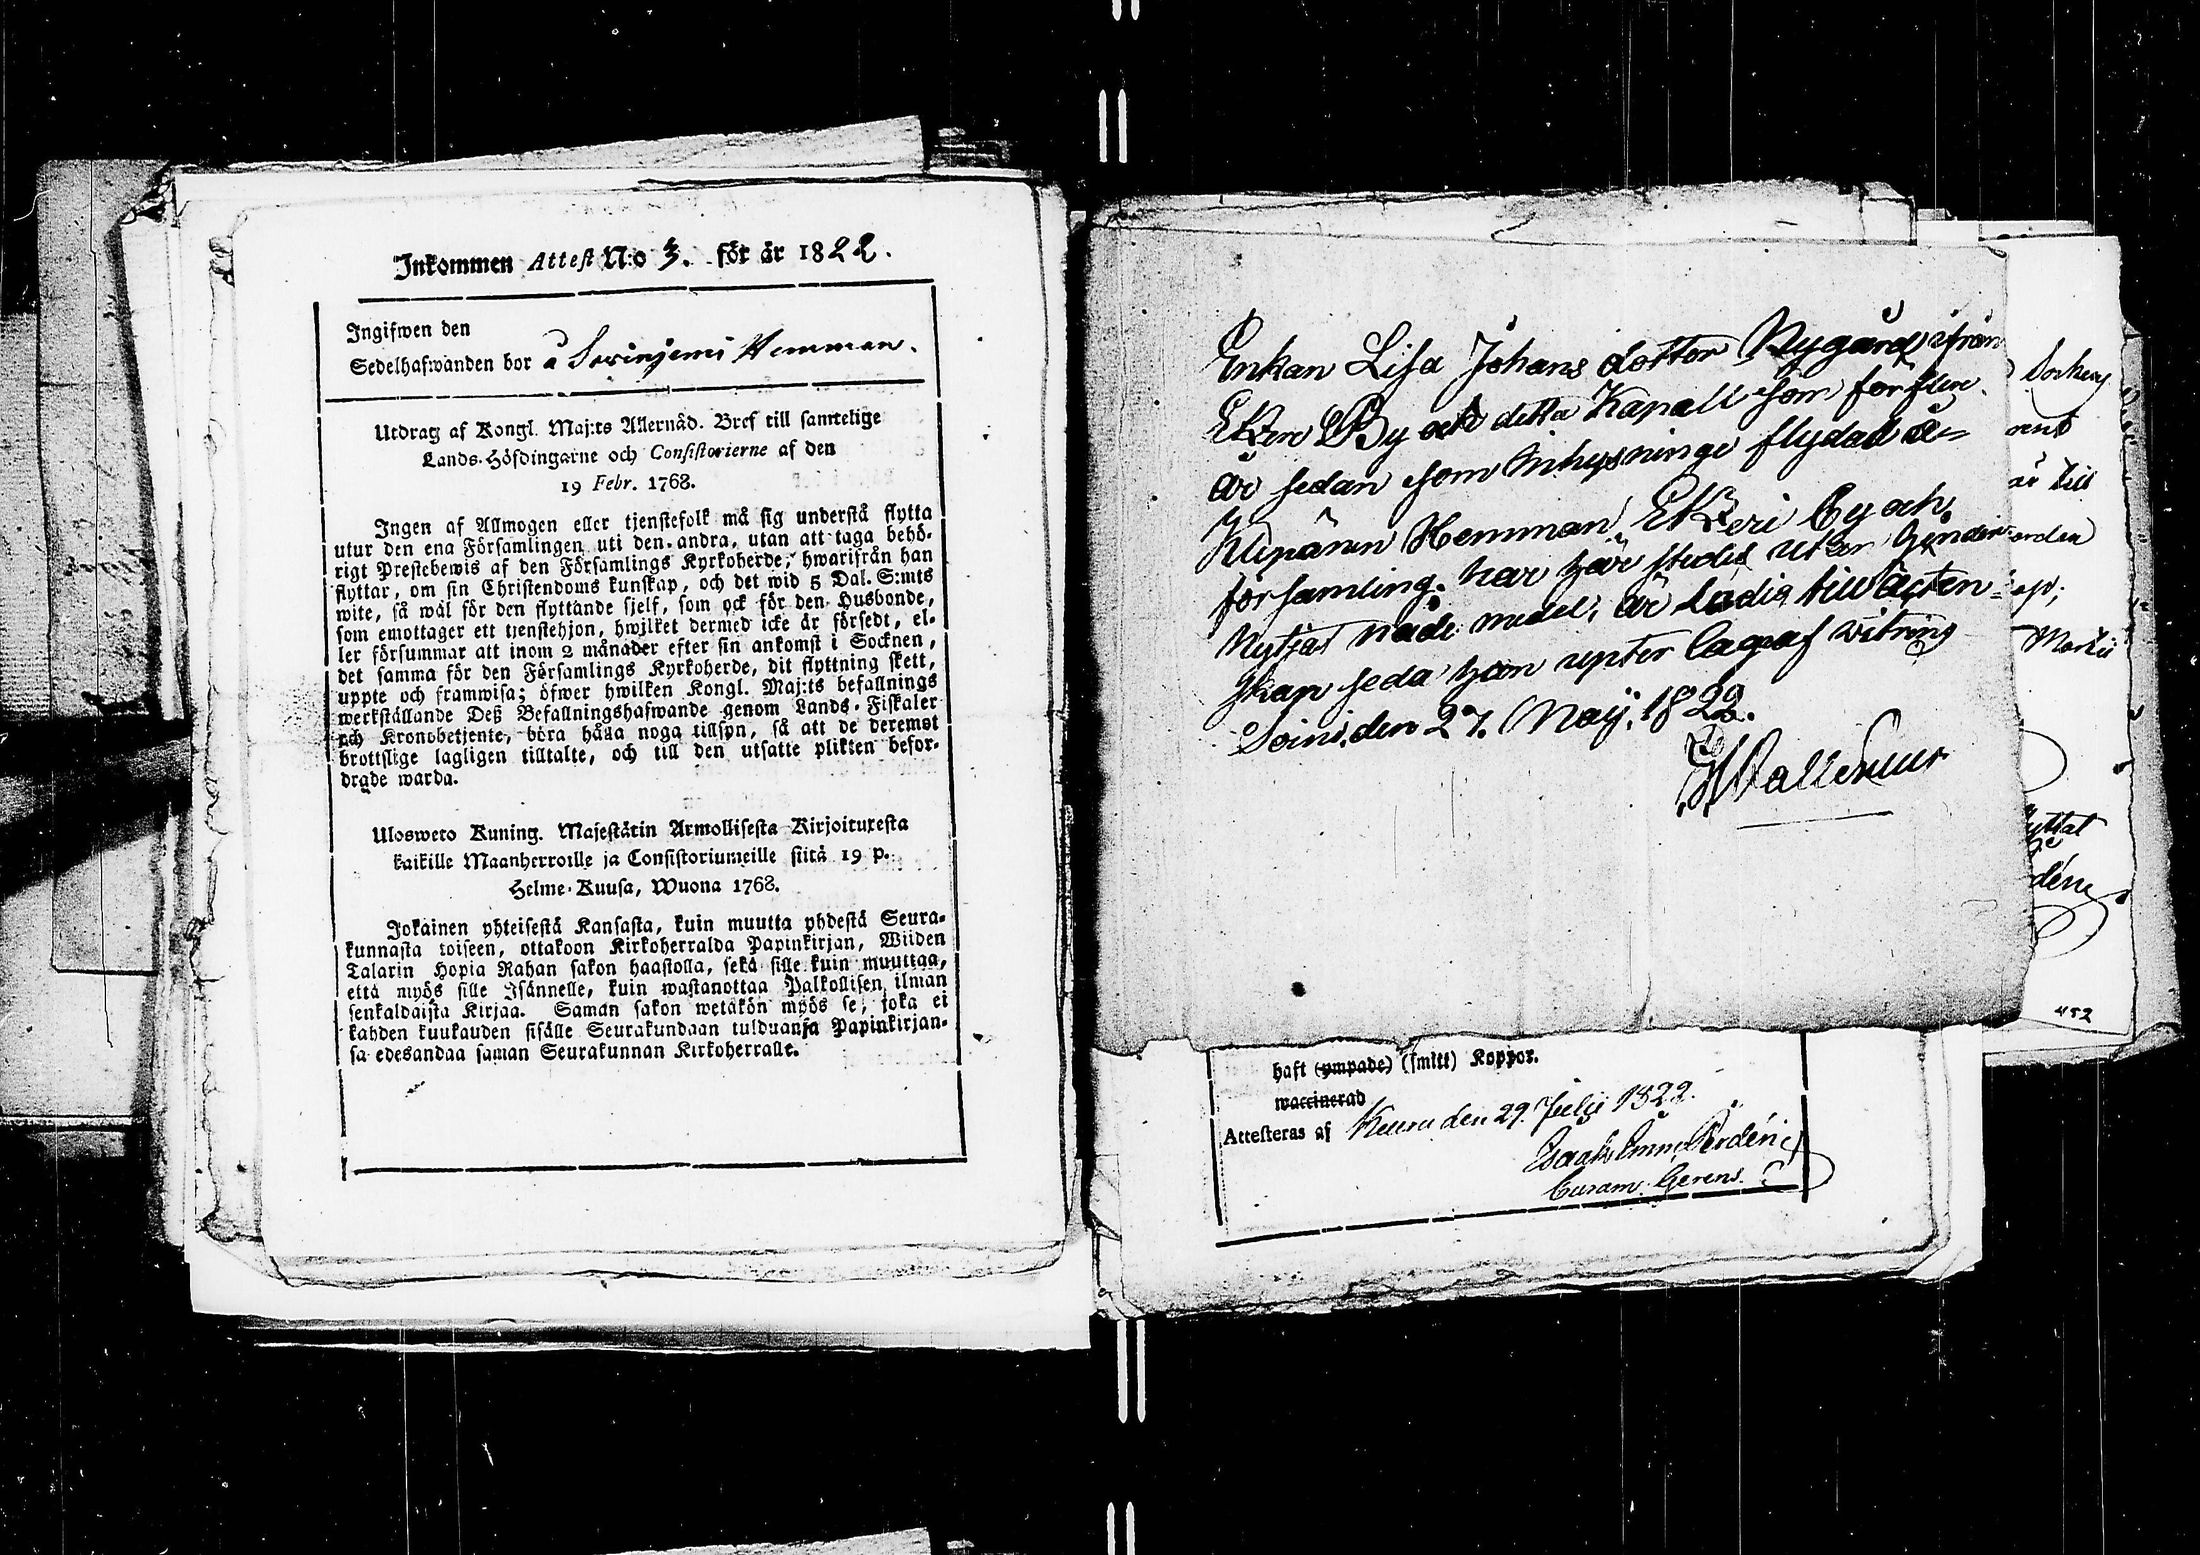 Inkommen Attest N:o 3. för år 1822.
Ingifwen den
Sedelhafwanden bor å Hemman.
Utdrag af Kongl. Maj:ts Allernåd. Bref till samtelige
Lands-Höfdingarne och Consistorierne af den
19 Febr. 1768.
Ingen af Allmogen eller tjenstefolk må sig understå flytta
utur den ena Församlingen uti den andra, utan att taga behö-
rigt Prestebewis af den Församlings Kyrkoherde, hwarifrån han
flyttar, om sin Christendoms kunskap, och det wid 5 Dal. S:mts
wite, så wäl för den flyttande sjelf, som ock för den Husbonde,
som emottager ett tjenstehjon, hwilket dermed icke är försedt, el-
ler försummar att inom 2 månader efter sin ankomst i Socknen,
det samma för den Församlings Kyrkoherde, dit flyttning skett,
uppte och framwisa; öfwer hwilken Kongl. Maj:ts befallnings
werkställande Deß Befallningshafwande genom Lands-Fiskaler
och Kronobetjente, böra hålla noga tillsyn, så att de deremot
brottslige lagligen tilltalte, och till den utsatte plikten befor-
drade warda.
Ulosweto Kuning. Majestätin Armollisesta Kirjoituxesta
kaikille Maanherroille ja Consistoriumeille siitä 19 p.
Helme-Kuusa, Wuona 1768.
Jokainen yhteisestä Kansasta, kuin muutta yhdestä Seura-
kunnasta toiseen, ottakoon Kirkoherralda Papinkirjan, Wiiden
Talarin Hopia Rahan sakon haastolla, sekä sille kuin muuttaa,
että myös sille Isännelle, kuin wastanottaa Palkollisen ilman
senkaldaista Kirjaa. Saman sakon wetäkön myös se, joka ei
kahden kuukauden sisälle Seurakundaan tulduanja Papinkirjan-
sa edesandaa saman Seurakunnan Kirkoherralle.
Enkan Lisa Johans dotter Nygård ifrån
By och detta Kapell som för flere
år sedan som Inhysninge flydad å
Hemman, by och
församling. har här stedes
Nytjat nåde medel, är Ledig till äcten
skap seda hon upter lagaf witring
Soini, den 27. Maÿ. 1822.
haft (ympade) (smitt) Koppor.
waccinerad
Attesteras af Keuru den 29. Julii 1822.
Isaak Emn.
Curam Gerens.
till
Martii
452